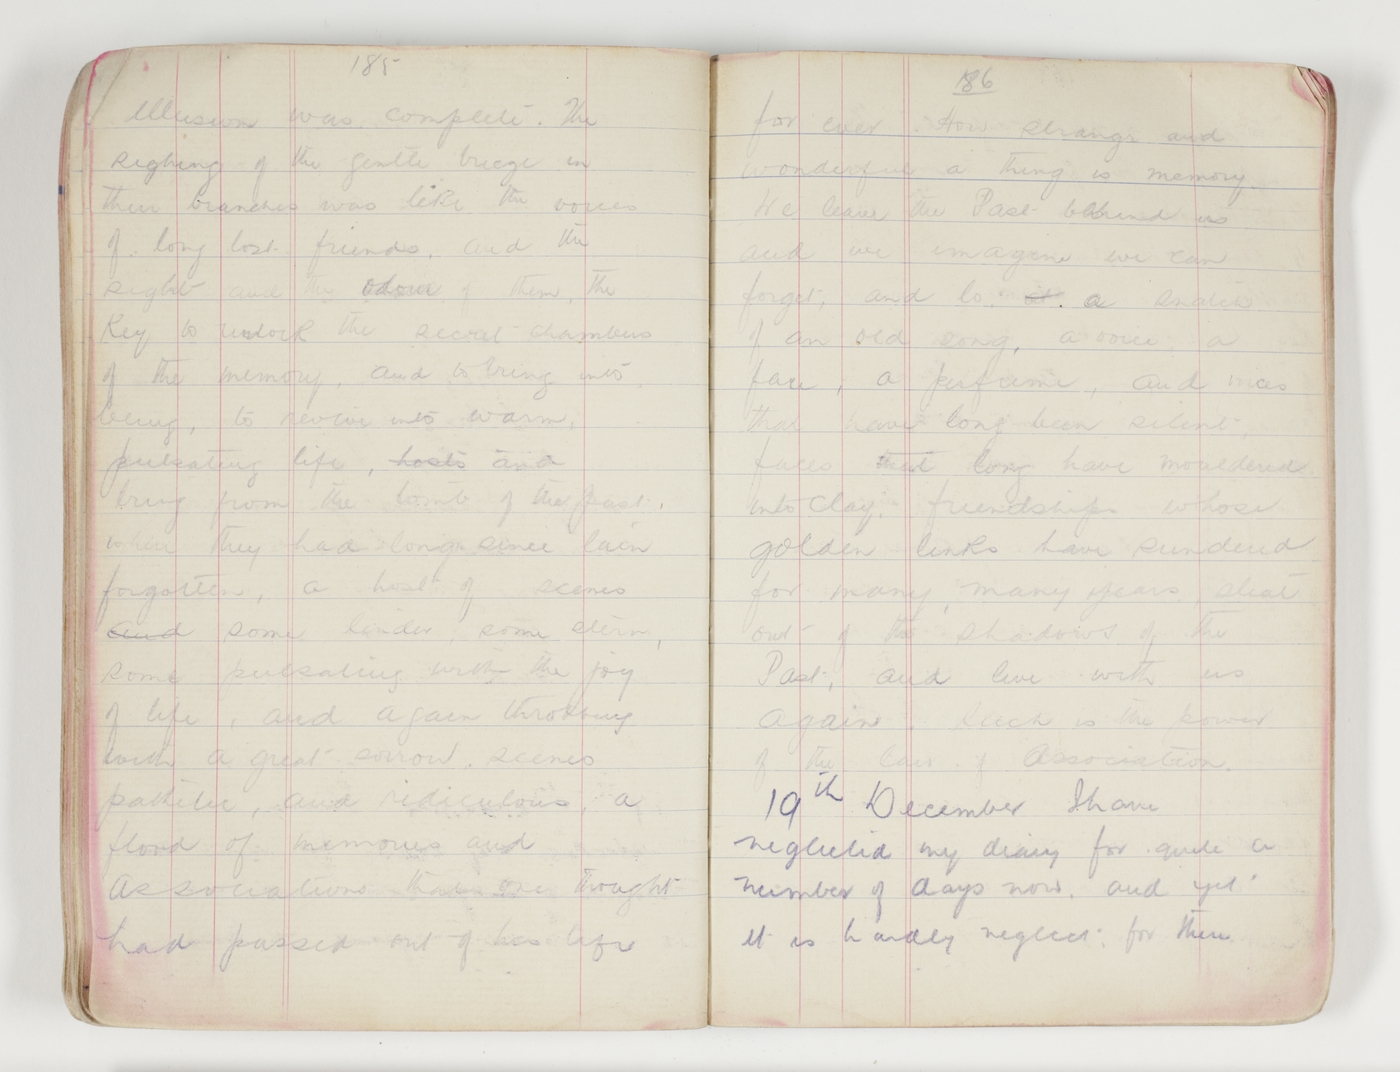 185
illusion was complete. The
sighing of the gentle breeze in
their branches was like the voices
of long lost friends, and the
sight and the odour of them, the
Key to unlock the secret chambers
of the memory, and to bring into
being, to revive into warm,
pulsating life, hosts and
bring from the tomb of the past,
where they had long since lain
forgotten, a host of scenes
and some tender, some stern,
some pulsating with the joy
of life, and again throbbing
with a great sorrow. scenes
pathetic, and ridiculous, a
flood of memories and
Associations that one thought
had passed out of his life
186
for ever. How strange and
wonderful a thing is memory.
We leave the Past behind us
and we imagine we can
forget, and lo. it. a snatch
of an old song, a voice a
face, a perfume, and
that have long been silent,
faces that long have mouldered
into Clay. friendships whose
golden links have sundered
for many, many years, steal
out of the shadows of the
Past, and live with us
again. Such is the power
of the Law of Association.
19th December I have
neglected my diary for quite a
number of days now. and yet
it is hardly neglect. for there